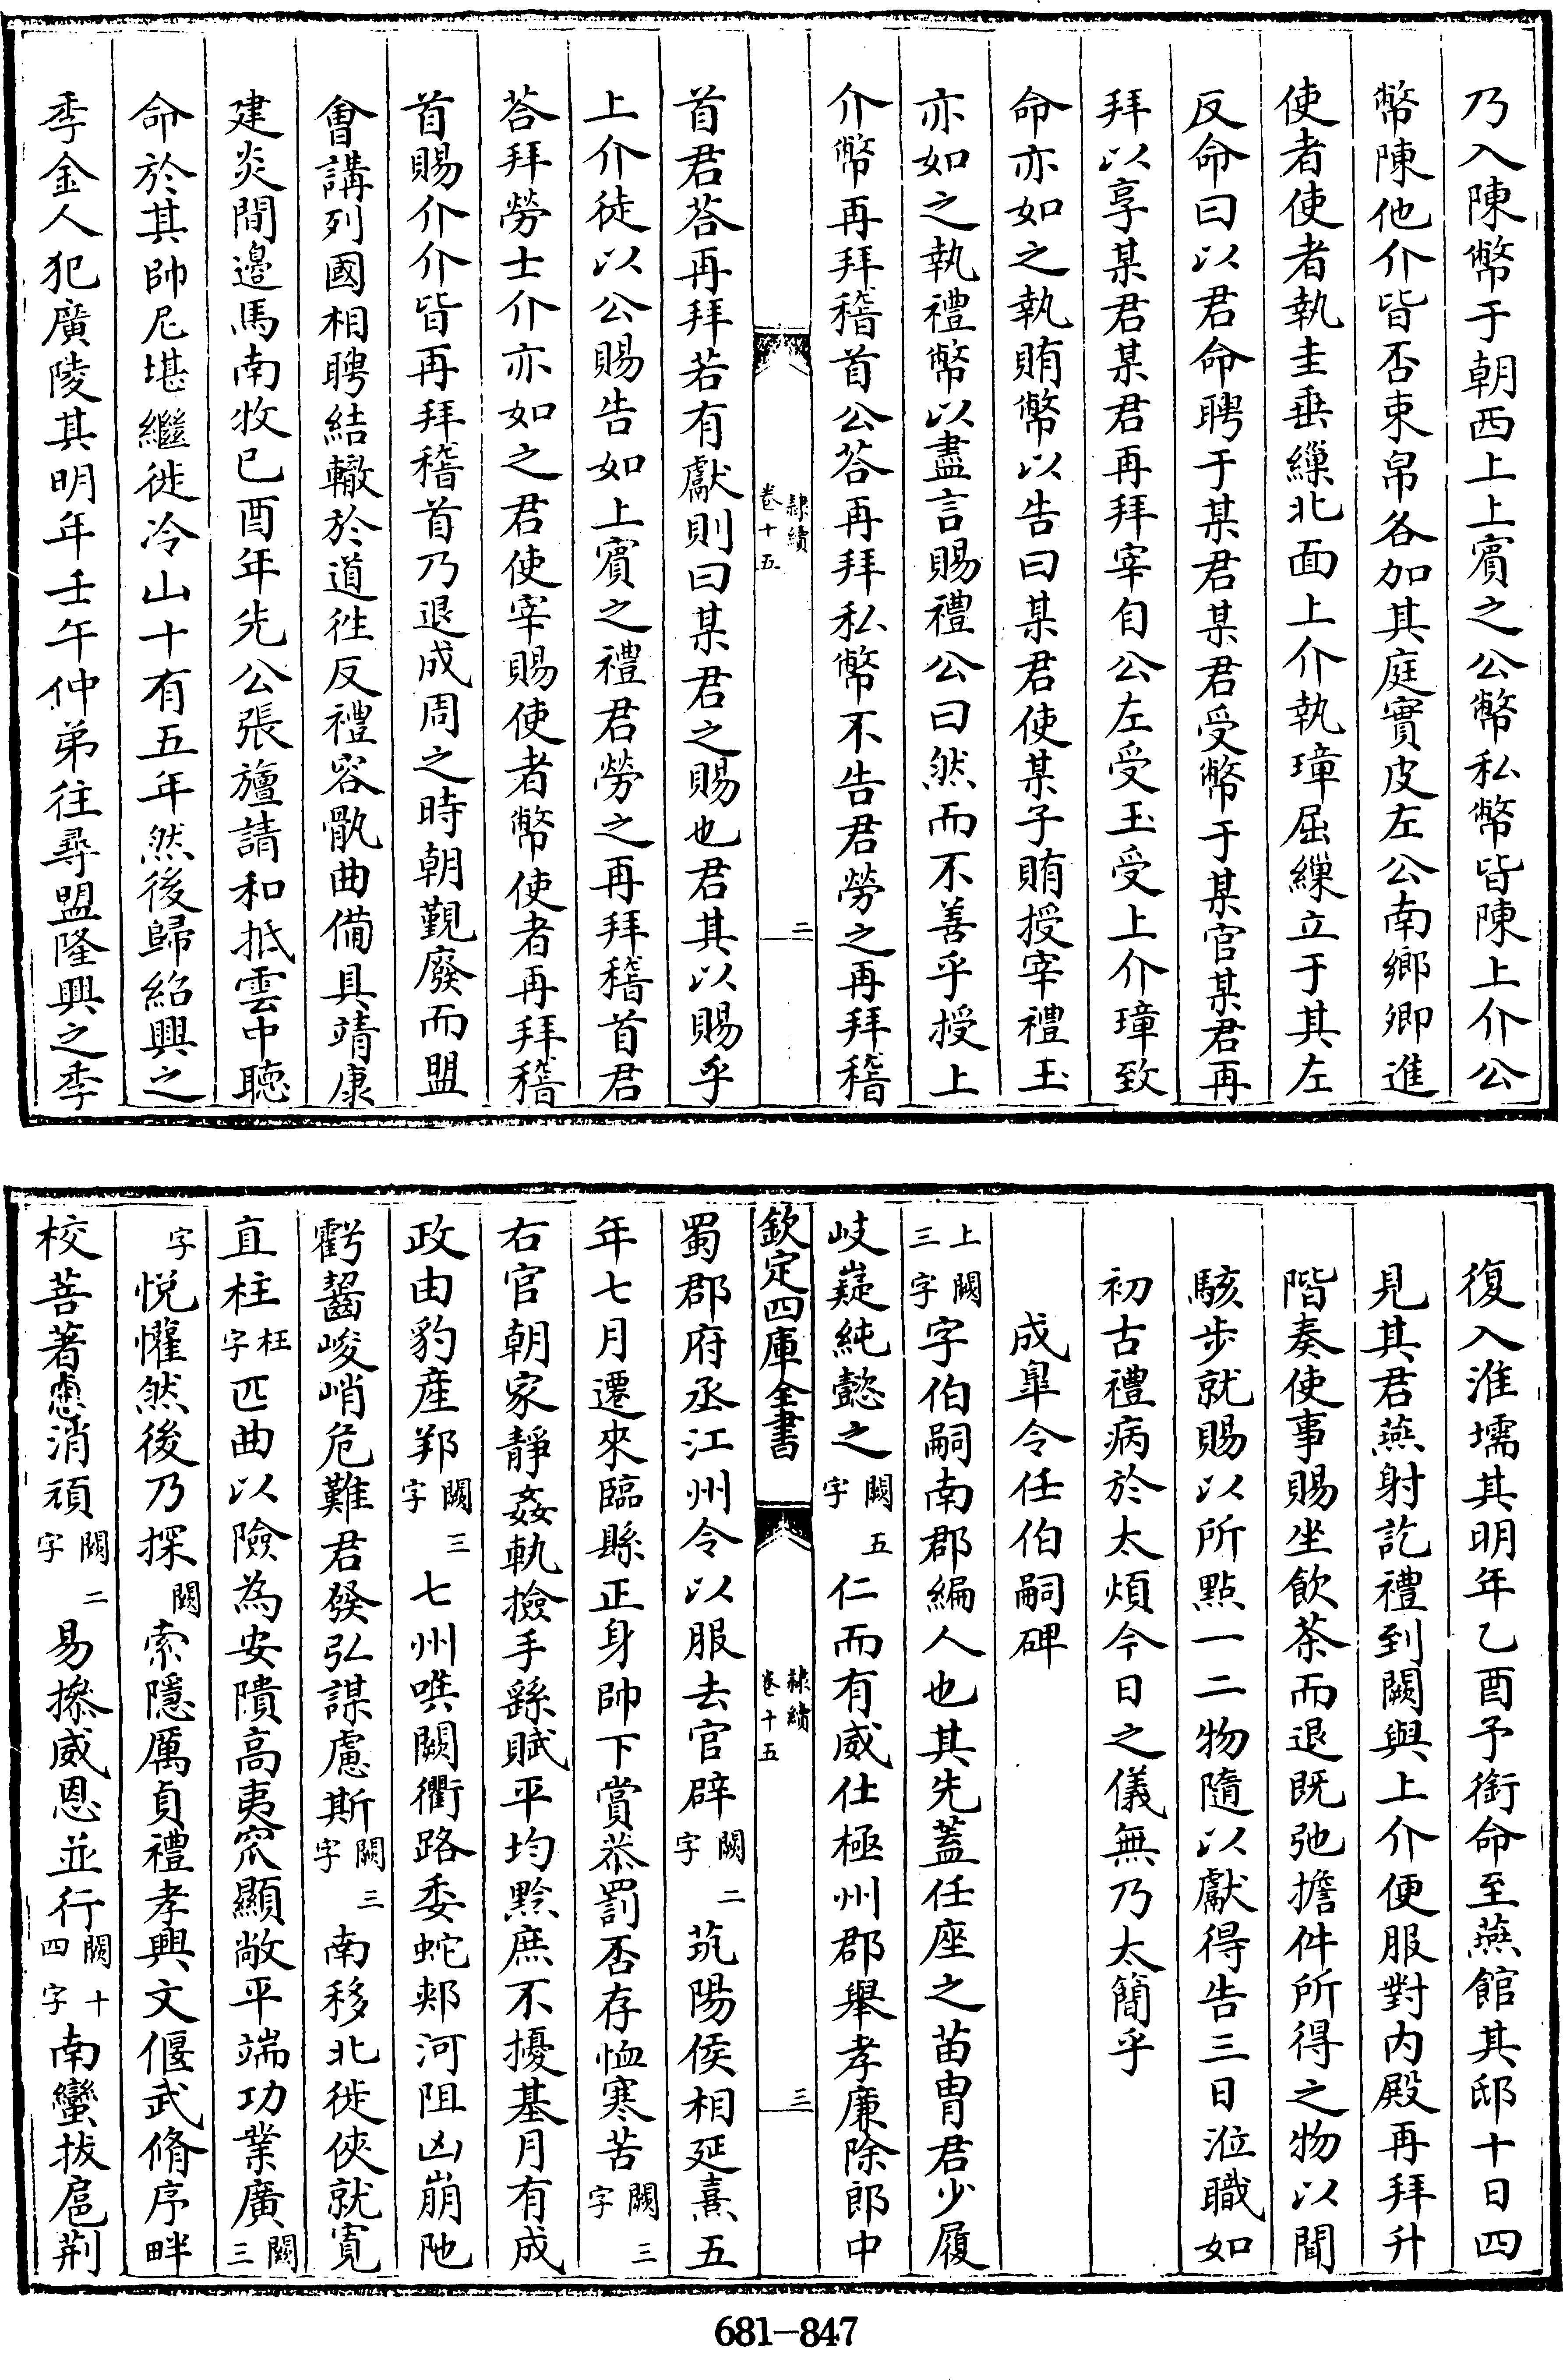 乃入陳幣于朝西上上賓之公幣私幣皆陳上介公
幣陳他介皆否束帛各加其庭實皮左公南鄉卿進
使者使者執圭垂繅北面上介執璋屈繅立于其左
反命曰以君命聘于某君某君受幣于某宮某君再
拜以享某君某君再拜宰自公左受玉受上介璋致
命亦如之執賄幣以告曰某君使某子賄授宰禮玉
亦如之執禮幣以盡言賜禮公曰然而不善乎授上
介幣再拜稽首公荅再拜私幣不告君勞之再拜稽
隸續
卷十五
二
首君荅再拜若有獻則曰某君之賜也君其以賜乎
上介徒以公賜告如上賓之禮君勞之再拜稽首君
荅拜勞士介亦如之君使宰賜使者幣使者再拜稽
首賜介介皆再拜稽首乃退成周之時朝覲廢而盟
會講列國相聘結轍於道往反禮容骫曲備具靖康
建炎間邊馬南牧已酉年先公張旜請和抵雲中聽
命於其帥尼堪繼徙冷山十有五年然後歸紹興之
季金人犯廣陵其明年壬午仲弟往尋盟隆興之季
復入淮壖其明年乙酉予銜命至燕館其邸十日四
見其君燕射訖禮到闕與上介便服對内殿再拜升
階奏使事賜坐飲茶而退既弛擔件所得之物以聞
駭步就賜以所點一二物隨以獻得告三日涖職如
初古禮病於太煩今日之儀無乃太簡乎
成臯令任伯嗣碑
上闕三字字伯嗣南郡編人也其先蓋任座之苗胄君少履
岐嶷純懿之闕五字仁而有威仕極州郡舉孝廉除郎中
欽定四庫全書
隸續
卷十五
三
蜀郡府丞江州令以服去官辟闕二字筑陽侯相延熹五
年七月遷來臨縣正身帥下賞恭罰否存恤寒苦闕三字
右官朝家靜姦軌撿手繇賦平均黔庶不擾基月有成
政由豹産鄴闕三字七州嘆闕衢路委蛇郟河阻凶崩阤
虧齧峻峭危難君發弘謀慮斯闕三字南移北徙俠就寛
直柱枉字匹曲以險為安隤高夷窊顯敞平端功業廣闕三
字悦懽然後乃探闕索隱厲貞禮孝興文偃武脩序畔
校菩著憲消頑闕二字易摻威恩並行闕十四字南蠻拔扈荆
681-847